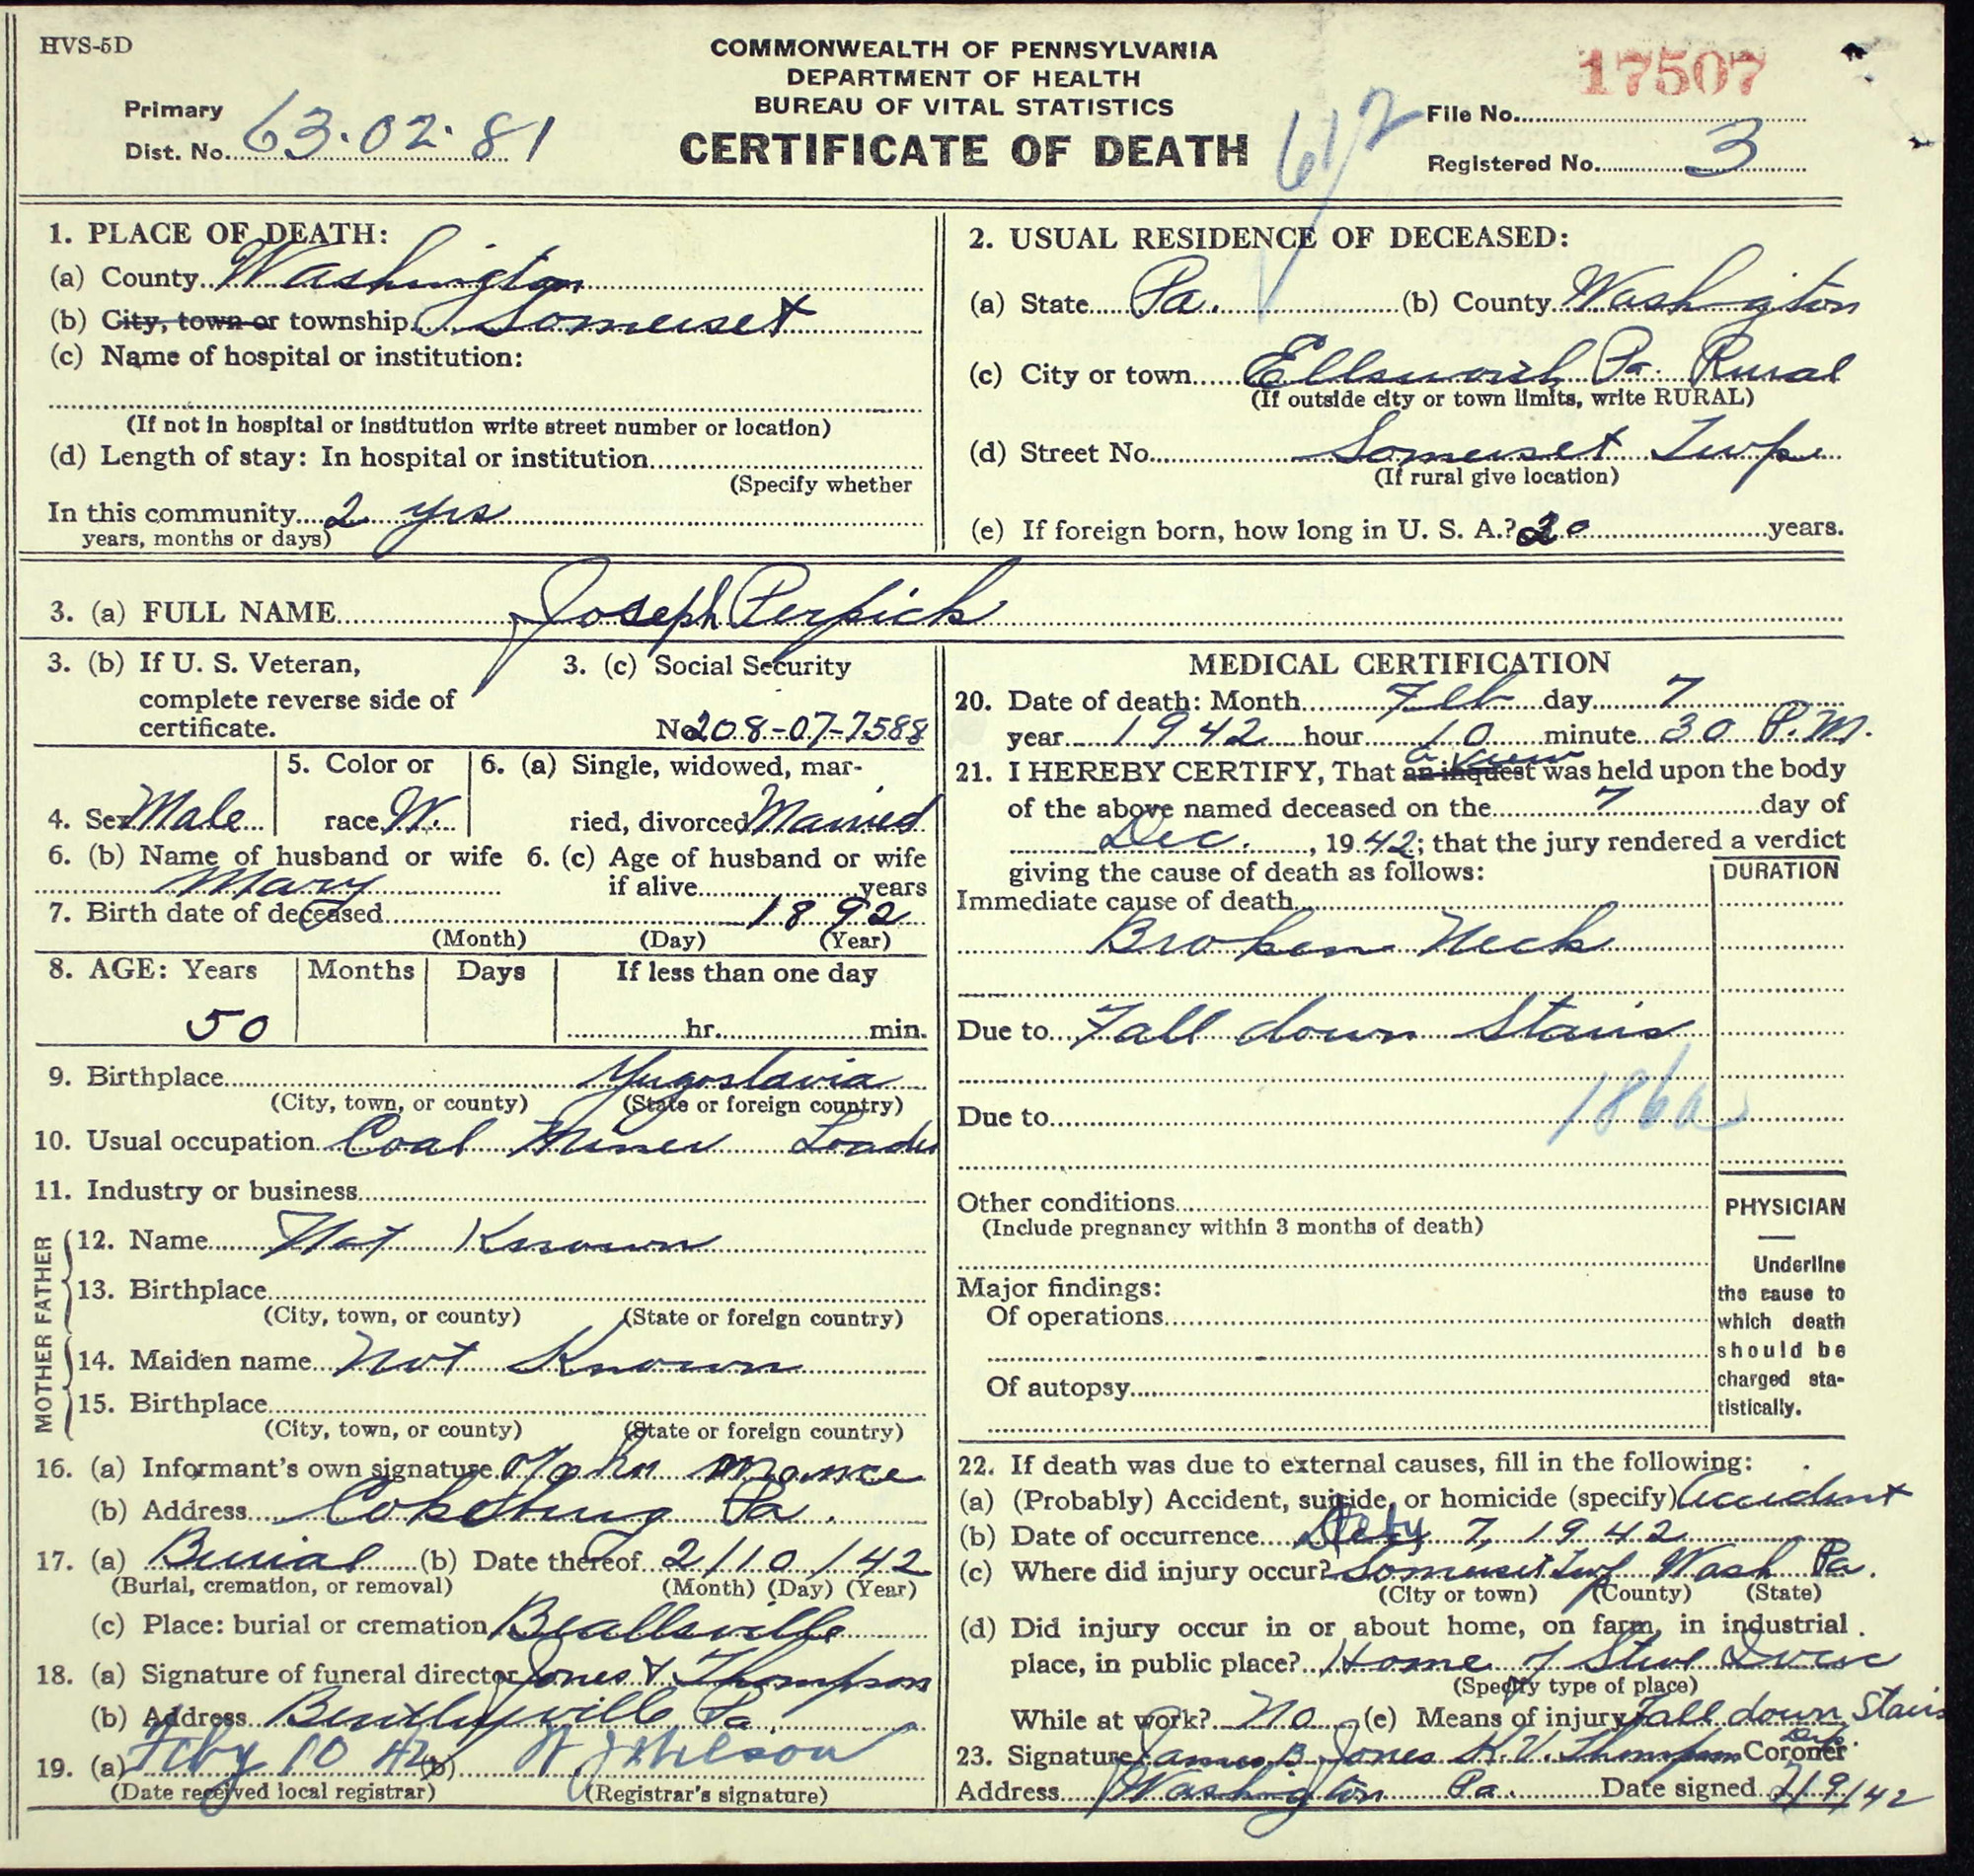 HVS-5D
COMMONWEALTH OF PENNSYLVANIA
DEPARTMENT OF HEALTH
BUREAU OF VITAL STATISTICS
CERTIFICATE OF DEATH
Primary
Dist. No. 63-02-81
612
17507
File No.
Registered No. 3
1. PLACE OF DEATH:
(a) County Washington
(b) City, town or township Somerset
(c) Name of hospital or institution:
(If not in hospital or institution write street number or location)
(d) Length of stay: In hospital or institution
(Specify whether
In this community 2 yrs
years, months or days)
2. USUAL RESIDENCE OF DECEASED:
(a) State Pa. (b) County Washington
(c) City or town Ellsworth Pa. Rural
(If outside city or town limits, write RURAL)
(d) Street No. Somerset Twp
(If rural give location)
(e) If foreign born, how long in U. S. A.? 20 years.
3. (a) FULL NAME Joseph Perpick
3. (b) If U. S. Veteran,
complete reverse side of
certificate.
3. (c) Social Security
No 208-07-7588
4. Sex Male
5. Color or
race W.
6. (a) Single, widowed, mar-
ried, divorced Married
6. (b) Name of husband or wife
Mary
6. (c) Age of husband or wife
if alive years
7. Birth date of deceased 1892
(Month) (Day) (Year)
8. AGE: Years Months Days If less than one day
50 hr. min.
9. Birthplace Yugoslavia
(City, town, or county) (State or foreign country)
10. Usual occupation Coal Miner Loader
11. Industry or business
FATHER
12. Name Not Known
13. Birthplace
(City, town, or county) (State or foreign country)
MOTHER
14. Maiden name Not Known
15. Birthplace
(City, town, or county) (State or foreign country)
16. (a) Informant's own signature John
(b) Address Cokeburg Pa.
17. (a) Burial (b) Date thereof 2/10/42
(Burial, cremation, or removal) (Month) (Day) (Year)
(c) Place: burial or cremation Beallsville
18. (a) Signature of funeral director Jones & Thompson
(b) Address Bentleyville Pa.
19. (a) Feby 10 42 (b)
(Date received local registrar) (Registrar's signature)
MEDICAL CERTIFICATION
20. Date of death: Month Feb day 7
year 1942 hour 10 minute 30 P.M.
a view
21. I HEREBY CERTIFY, That an inquest was held upon the body
of the above named deceased on the 7 day of
Dec. , 1942; that the jury rendered a verdict
giving the cause of death as follows:
DURATION
Immediate cause of death
Broken Neck
Due to Fall down Stairs
Due to 186a
Other conditions
(Include pregnancy within 3 months of death)
Major findings:
Of operations
Of autopsy
PHYSICIAN
Underline
the cause to
which death
should be
charged sta-
tistically.
22. If death was due to external causes, fill in the following:
(a) (Probably) Accident, suicide, or homicide (specify) Accident
(b) Date of occurrence Feby 7, 1942
(c) Where did injury occur? Somerset Twp Wash Pa.
(City or town) (County) (State)
(d) Did injury occur in or about home, on farm, in industrial
place, in public place? Home of Steve
(Specify type of place)
While at work? No (e) Means of injury Fall down Stairs
23. Signature James B. Jones H. V. Thompson Dep. Coroner
Address Washington Pa. Date signed 2/9/42